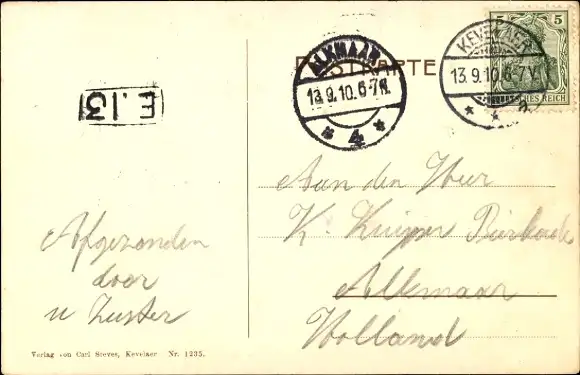 POSTKARTE
ALKMAAR
13.9.10.6-7N.
4
KEVELAER
13.9.10.6-7V.
5 5
DEUTSCHES REICH
E.13
Aan den Heer
K. Kuyper
Alkmaar
Holland
Afgezonden
door
u Zuster
Verlag von Carl Steves, Kevelaer Nr. 1235.